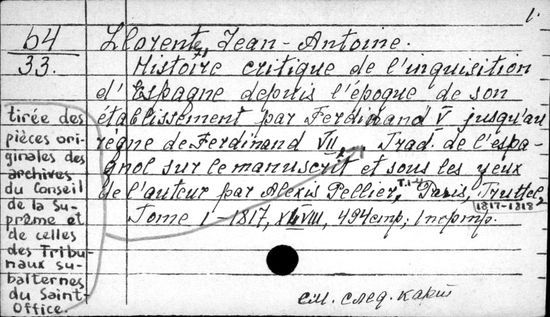 1.
64
33.
Llorente, Jean-Antoine.
Histoire critique de l'inquisition
d'Espagne depuis l'époque de son
établissement par Ferdinand V jusqu'au
règne de Ferdinand VII, Trad. de l'espa-
gnol sur le manuscrit et sous les yeux
de l'auteur par Alexis Pellier, T.1-4, Paris, Truttel,
1817-1818
Tome 1 - 1817, 494 стр;
tirée des
pièces ori-
ginales des
archives
du Conseil
de la Su-
prême et
de celles
des Tribu-
naux su-
balternes
du Saint-
Office.
см. след. карт